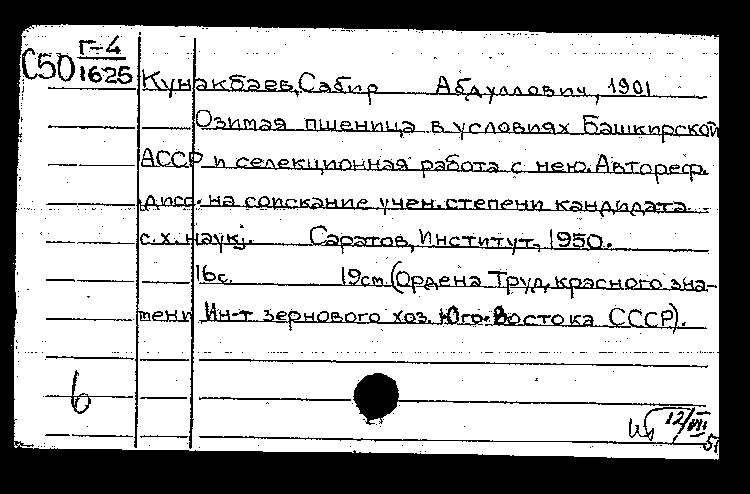 С50 Г-4
1625
Кунакбаев, Сабир Абдуллович, 1901
Озимая пшеница в условиях Башкирской
АССР и селекционная работа с нею. Автореф.
дисс. на соискание учен. степени кандидата
с.х. наук].  Саратов, Институт, 1950.
16с.  19см. (Ордена Труд. красного зна-
мени Ин-т зернового хоз. Юго-Востока СССР).
6
12/VII
51